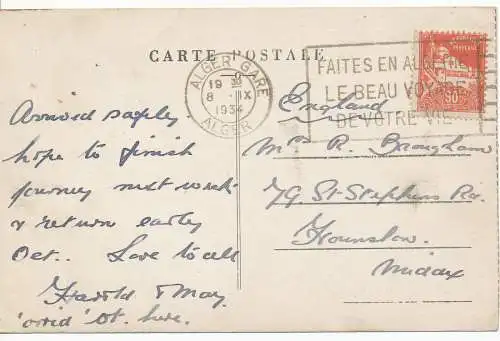 CARTE POSTALE
ALGER GARE
19 30
8 - IX
1934
ALGER
FAITES EN ALGERIE
LE BEAU VOYAGE
DE VOTRE VIE
90c
Arrived safely
hope to finish
journey next week
& return early
Oct.. Love to all
Harold & May
'orrid 'ot here.
England
Mrs R. Brougham
79 St. Stephens Rd.
Hounslow.
Middx